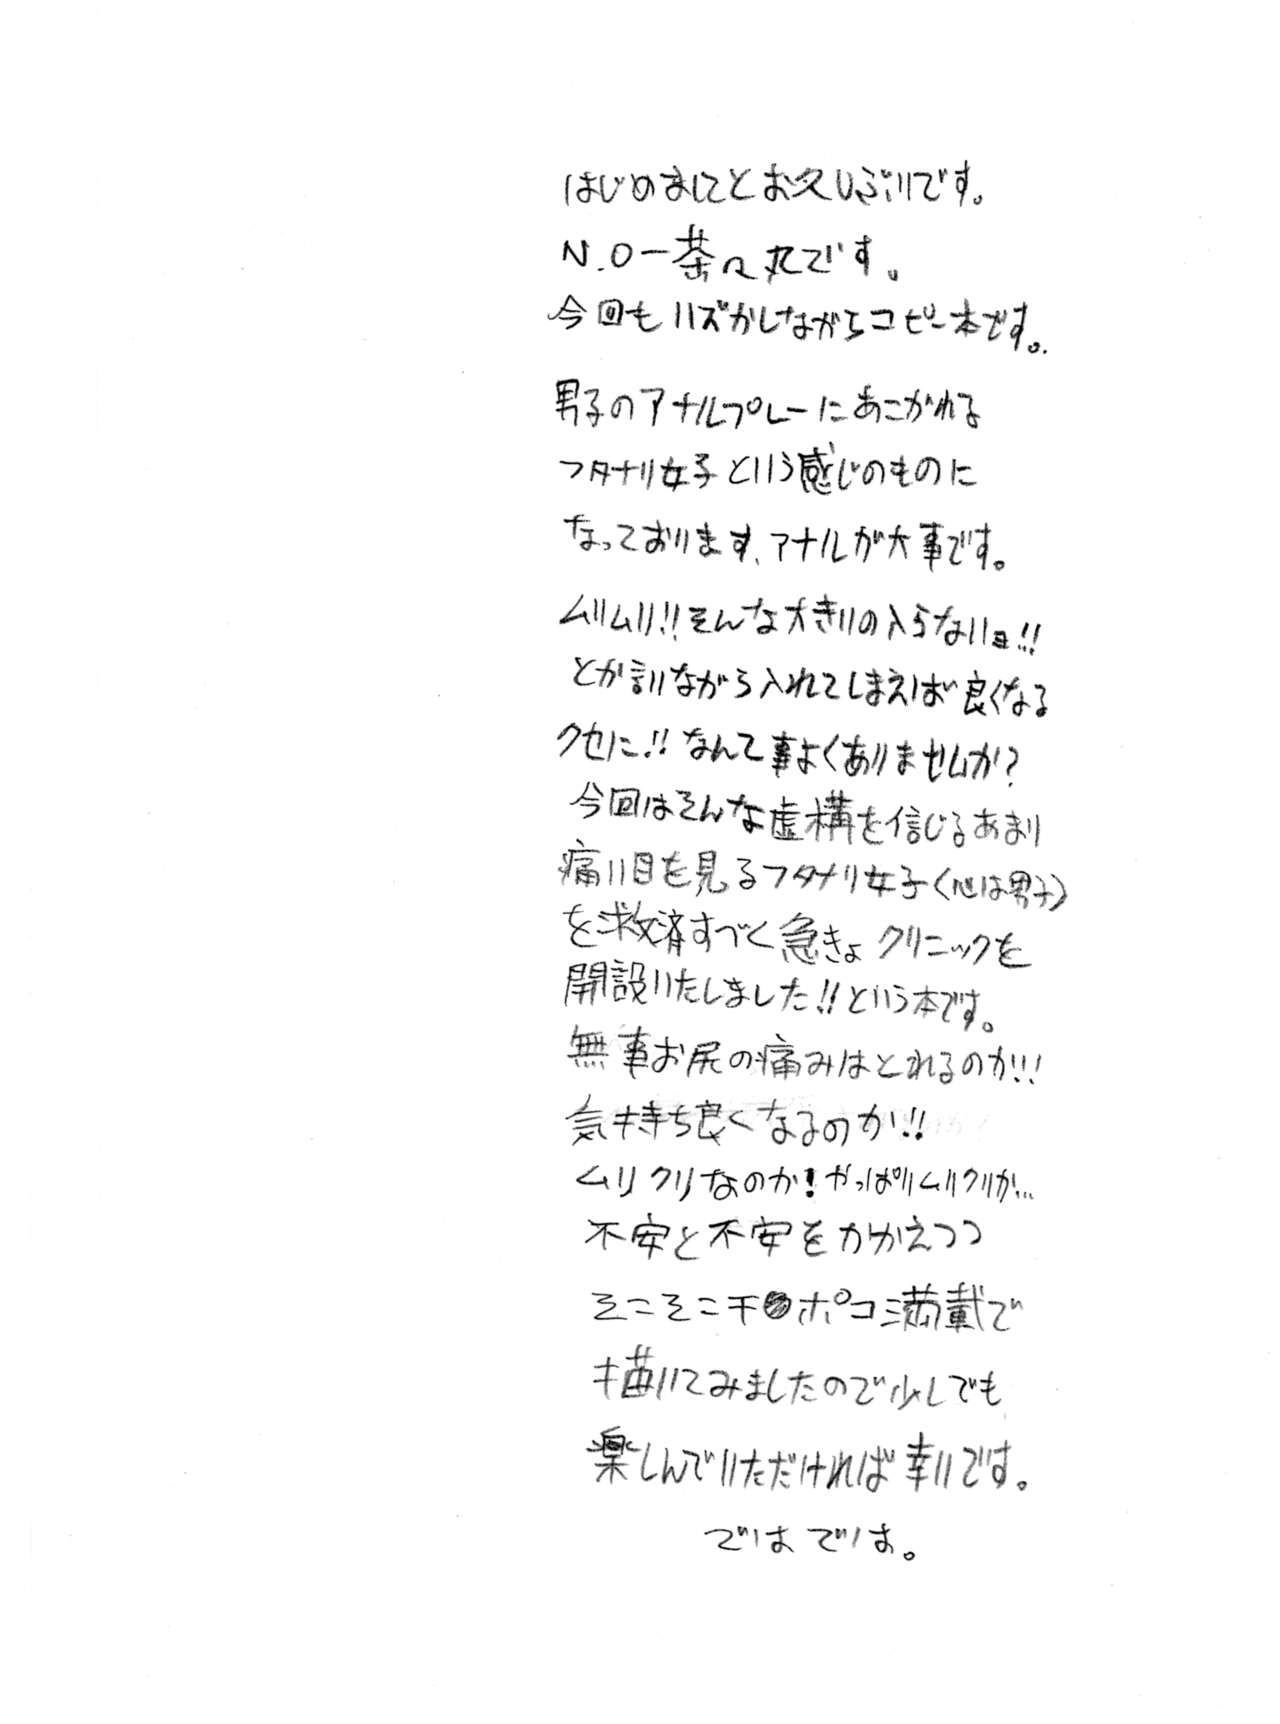 はじめましてとお久しぶりです。
N.O－茶々丸です。
今回もハズかしながらコピー本です。
男子のアナルプレーにあこがれる
フタナリ女子という感じのものに
なっております、アナルが大事です。
ムリムリ!!そんな大きいの入らないヨ!!
とか言いながら入れてしまえば良くなる
クセに!!なんて事よくありませんか?
今回はそんな虚構を信じるあまり
痛い目を見るフタナリ女子(心は男子)
を救済すべく急きょクリニックを
開設いたしました!!という本です。
無事お尻の痛みはとれるのか!!
気持ち良くなるのか!!
ムリクリなのか!やっぱりムリクリか…
不安と不安をかかえつつ
そこそこチ●ポコ満載で
描いてみましたので少しでも
楽しんでいただければ幸いです。
ではでは。